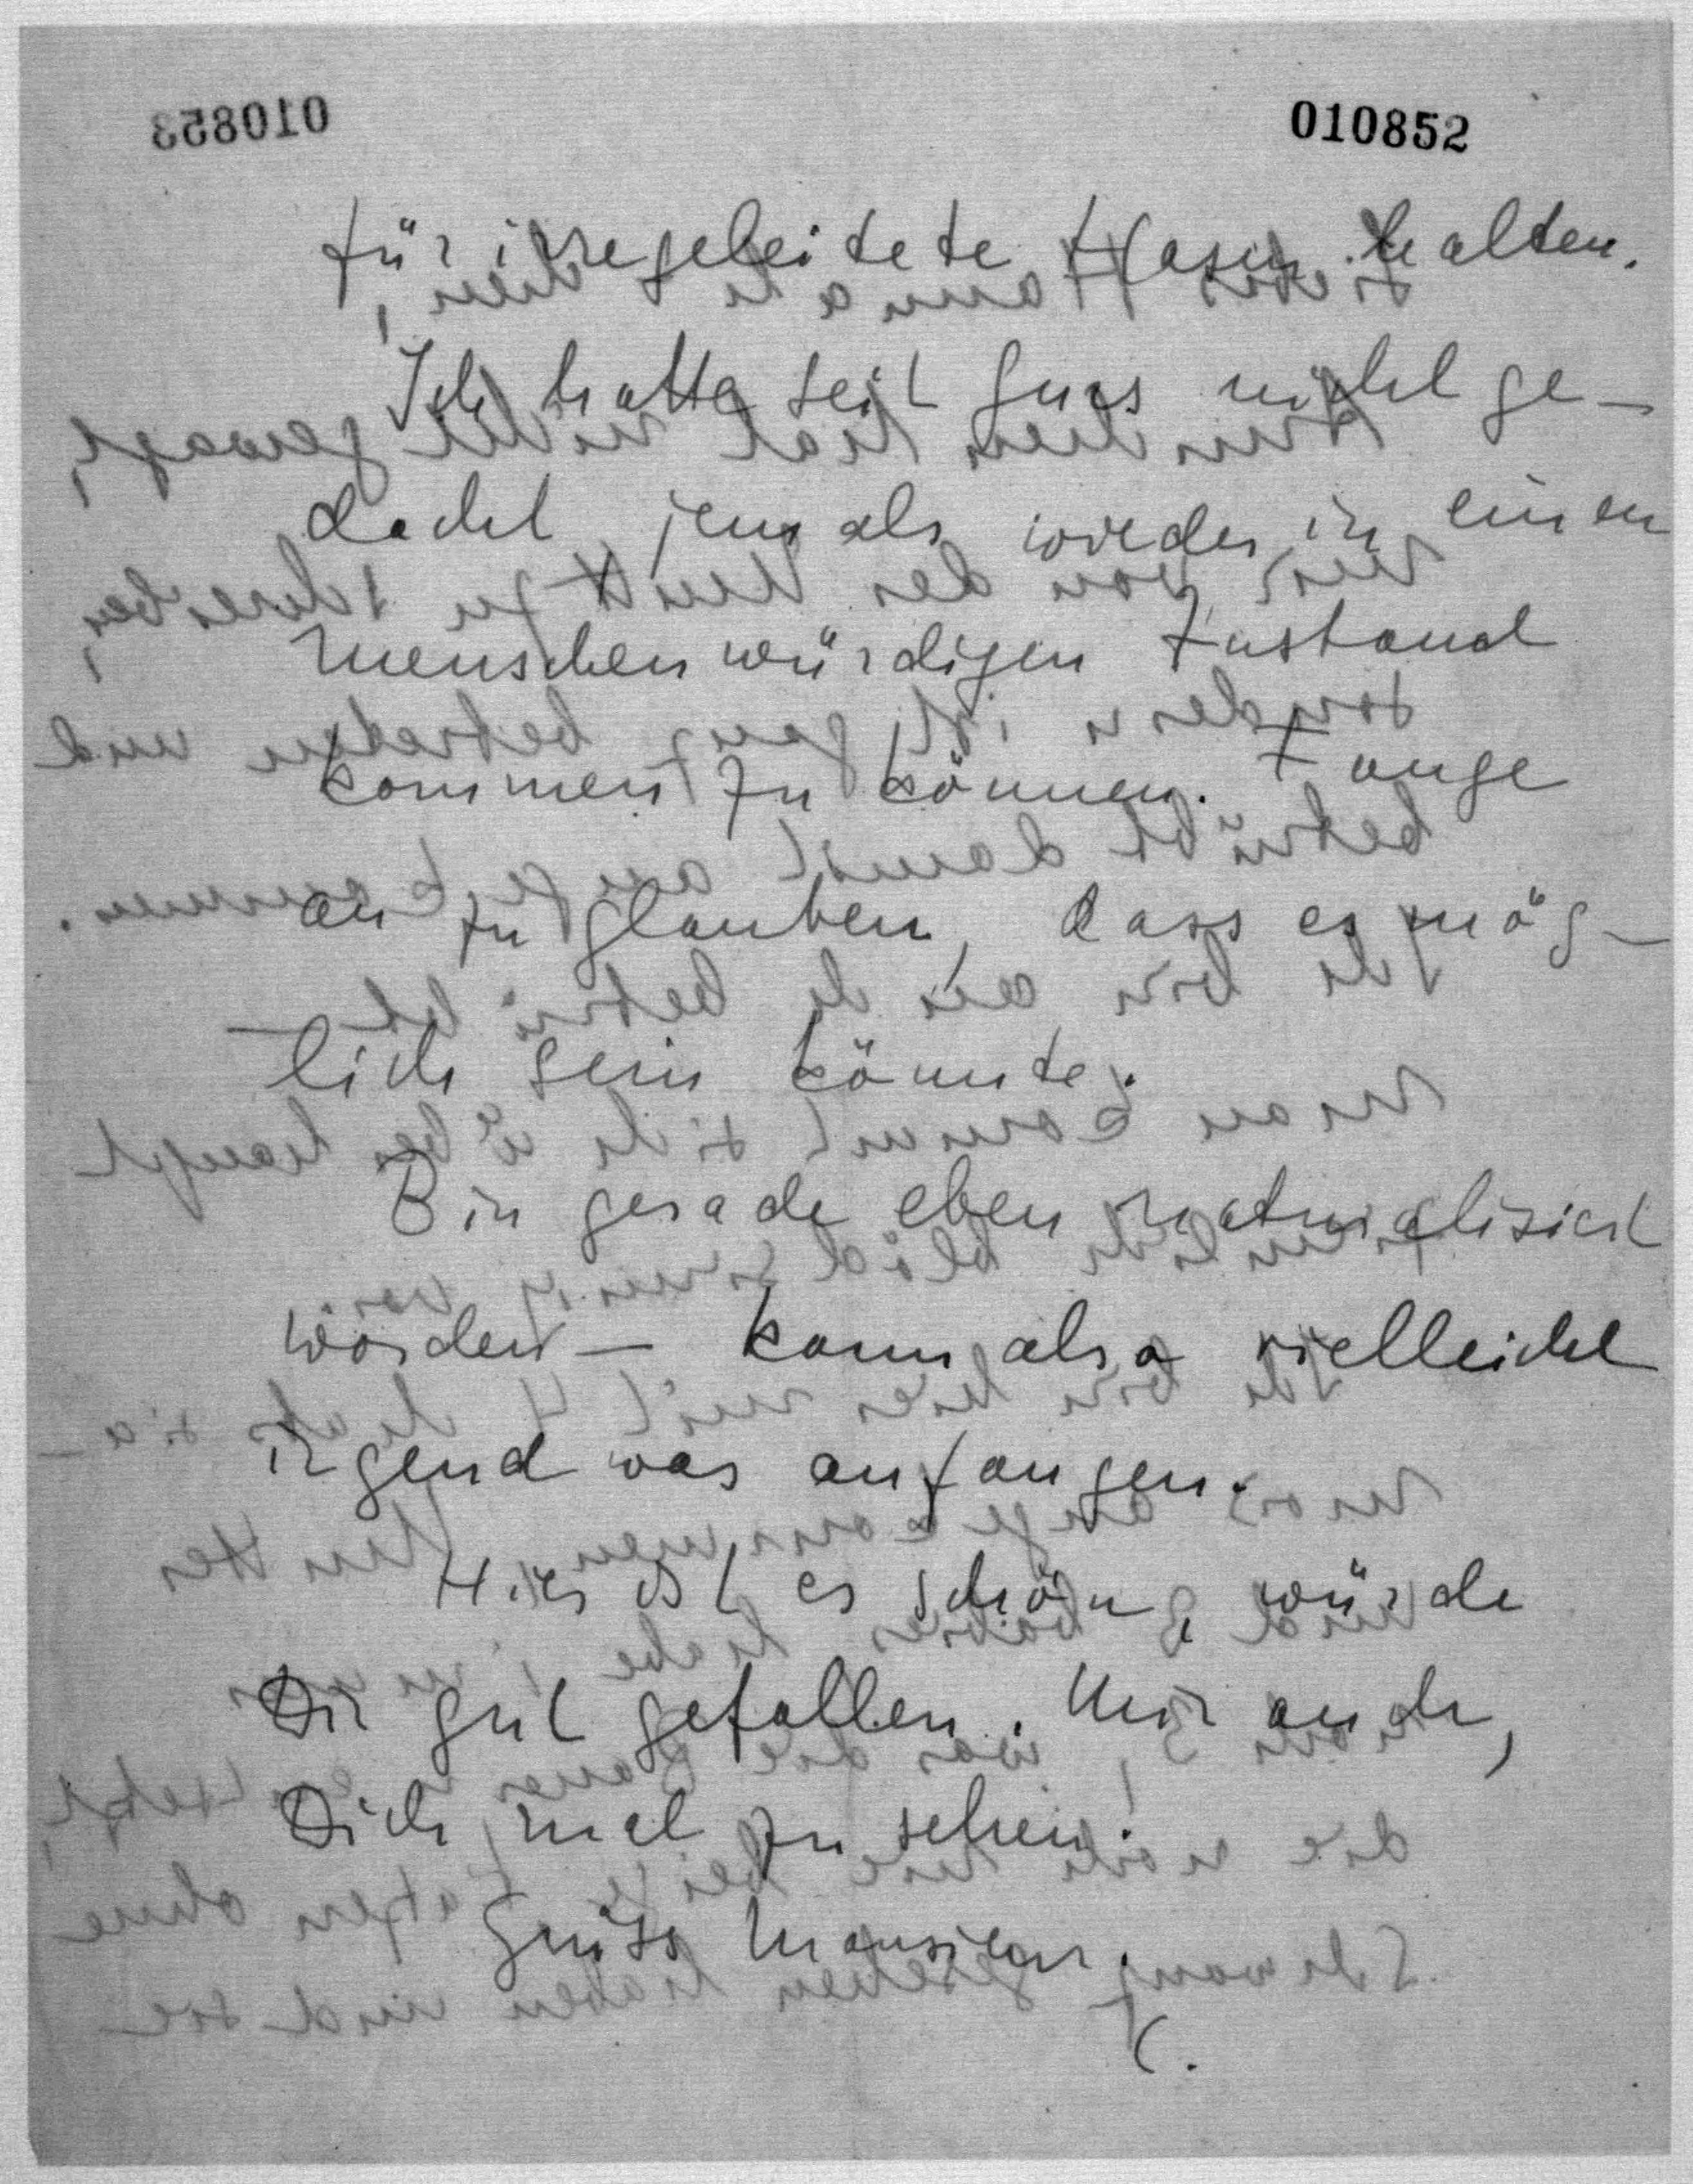 010852
für irregeleitete Hasen halten.
Ich hatte seit Gurs nicht ge-
dacht jemals wieder in einen
menschenwürdigen Zustand
kommen zu können. Fange
an zu glauben, dass es mög-
lich sein könnte.
Bin gerade eben naturalisiert
worden – kann also vielleicht
irgend was anfangen.
Hier ist es schön, würde
Dir gut gefallen. Mir auch,
Dich mal zu sehen.
Grüss
C.